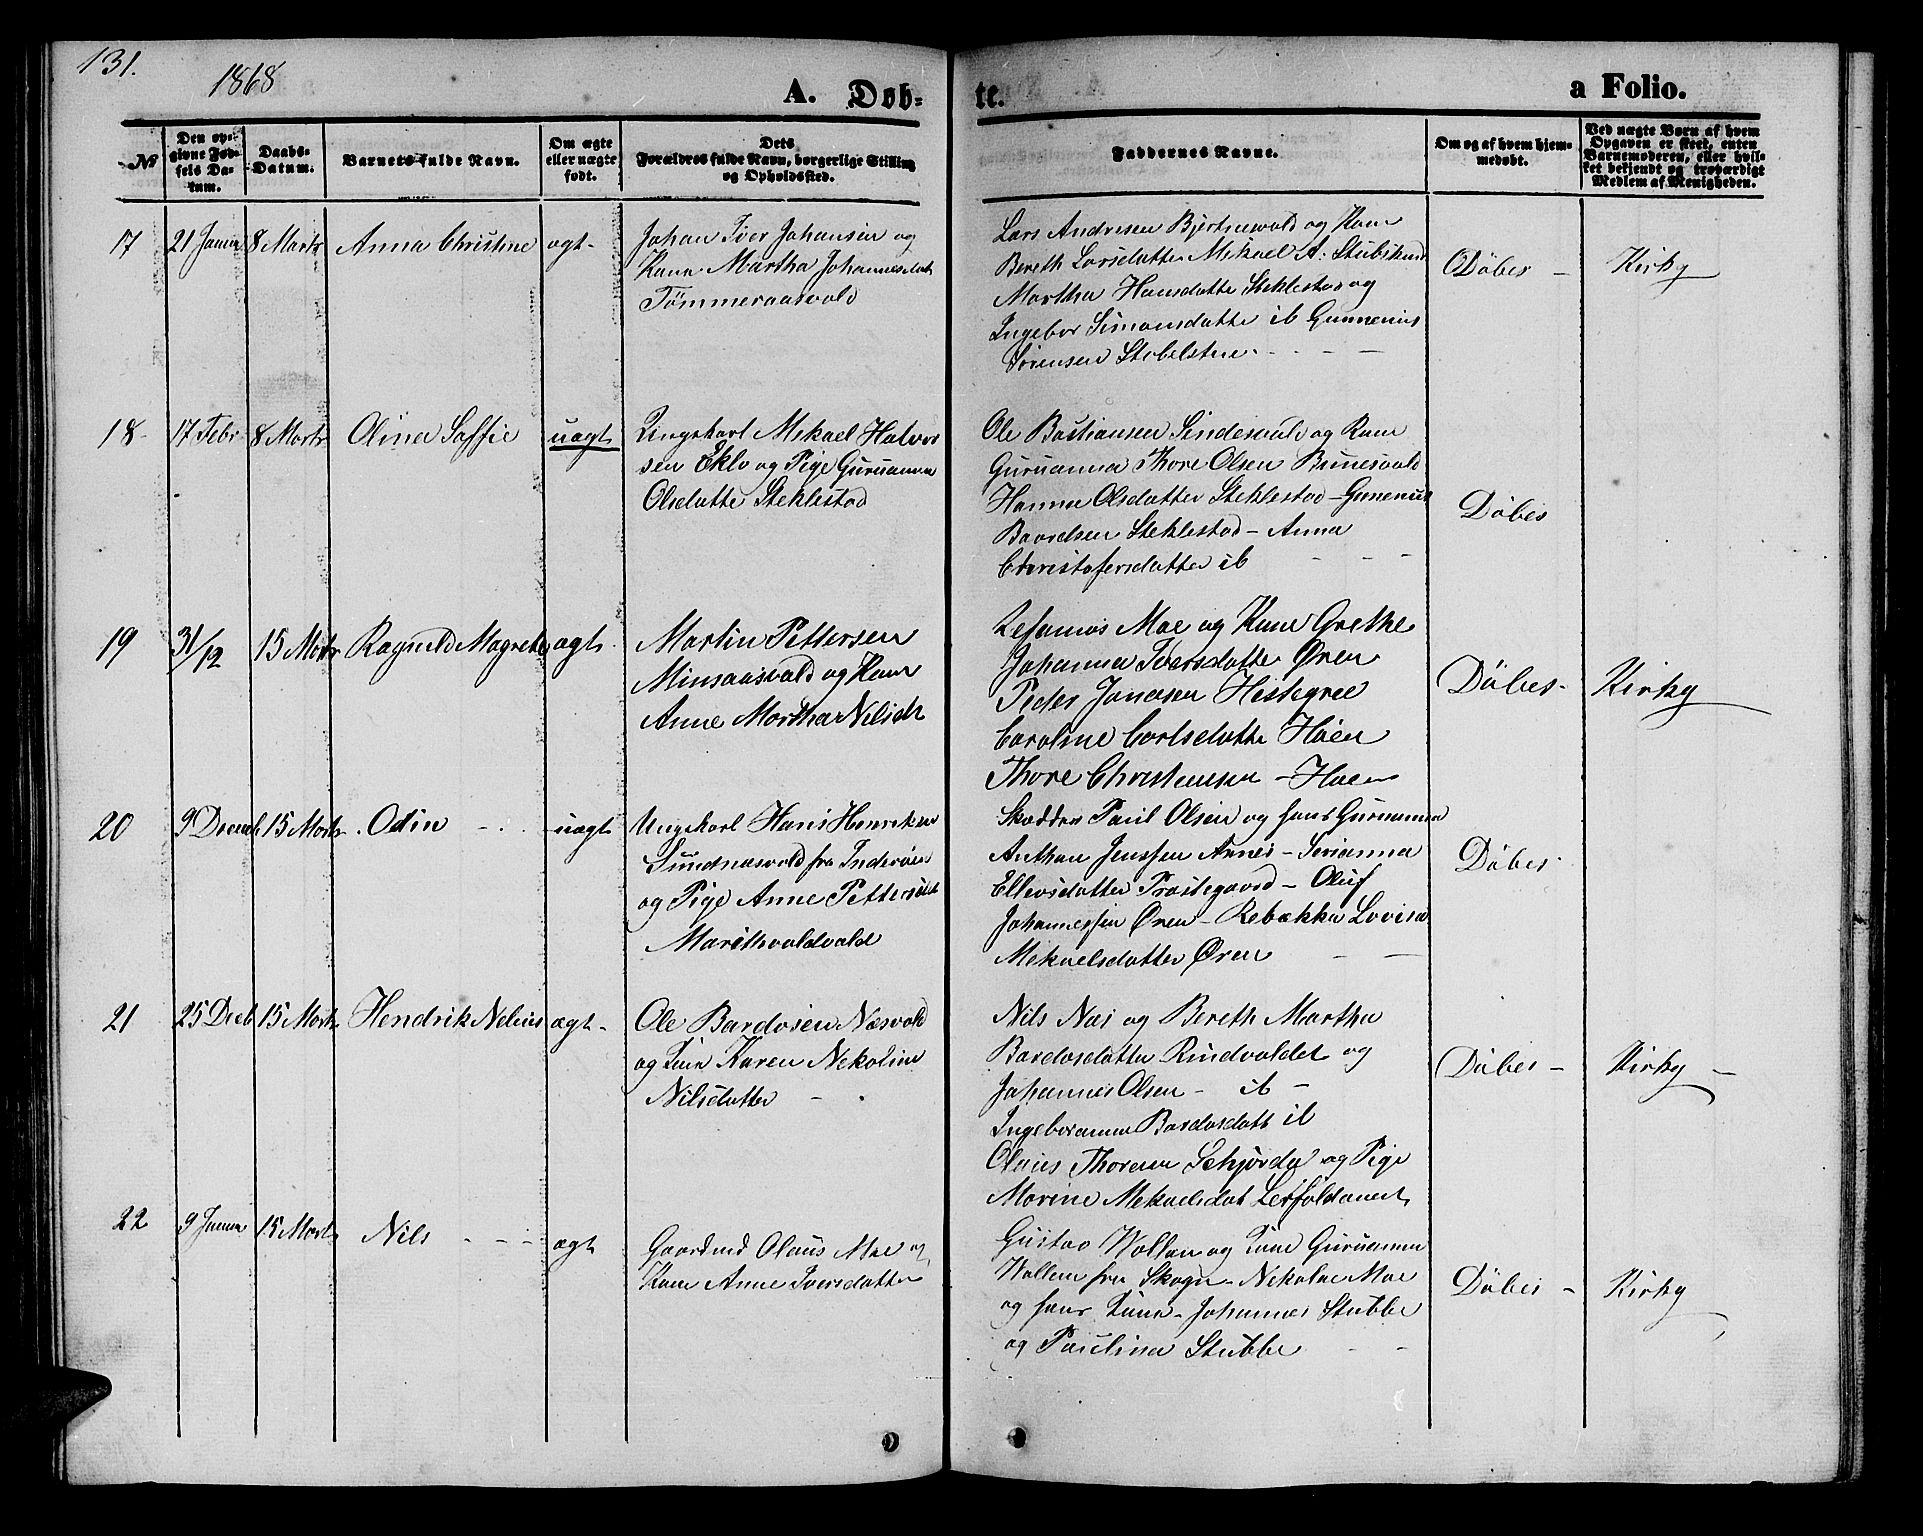 131.
1868
A. Døb-
te.
a Folio.
№
Den op-
givne Fød-
sels Da-
tum.
Daabs-
Datum.
Barnets fulde Navn.
Om ægte
eller uægte
født.
Dets
Forældres fulde Navn, borgerlige Stilling
og Opholdssted.
Faddernes Navne.
Om og af hvem hjem-
medøbt.
Ved uægte Børn af hvem
Opgaven er skeet, enten
Barnemoderen, eller hvil-
ket bekjendt og troværdigt
Medlem af Menigheden.
17 21 Januar 8 Marts Anna Christine ægt-
Johan Iver Johansen og
Kone Martha Johannesdat
Tømmeraasvald
Lars Andresen og Kone
Bereth Larsdatter Mikael A:
Martha Hansdatte Steklestad og
Ingebor Simonsdatte ib Gunnerius
Sørensen
Döbes - Kirky
18- 17 Febr 8 Marts Olina Saffie uægt
Ungekarl Mikael Halvor
sen Eklo og Pige Guruanna
Olsdatte Steklestad
Ole Bastiansen og Kone
Guruanna Thore Olsen
Hanna Olsdatter Steklestad - Gunerius
Baordsen Steklestad - Anna
Christofersdatter ib
Döbes
19 31/12 15 Marts Ragnild Magrete ægt
Martin Pettersen
Minsaasvald og Kone
Anne Martha Nilsdt
Moe og Kone Grethe
Johanna Iversdatte Øren
Peder Jonasen Hestegree
Caroline Carlsdatte Høen
Thore Christensen - Høen
Döbes- Kirky
20 9 Decemb 15 Marts Odin uægt
Ungekarl Hans Henriksen
Sundnæsvald fra Inderøen
og Pige Anne Pettersdat
Marithvaldvald
Skædder Paul Olsen og hans Guruanna
Anthon Jenssen - Serianna
Ellevsdatter Præstegaard - Oluf
Johannessen Øren - Rebækka Lovisa
Mekaelsdatter Øren
Döbes
21 25 Decb 15 Marts Hendrik Nelius ægt-
Ole Bardosen Næsvald
og Kone Karen Nekoline
Nilsdatter
Nils Næs og Bereth Martha
Bardosdatter Rindvaldet og
Johannes Olsen - ib -
Ingeboranna Bardosdatt ib
Olaus Thoresen og Pige
Marine Mekaelsdat
Döbes - Kirky
22 9 Januar 15 Marts Nils ægt
Gaardmd Olaus Moe og
Kone Anne Iversdatter
Gustav Wollan og Kone Guruanna
Wollem fra Skogn - Nekolae Moe
og hans Kone - Johannes Stubbe
og Paulina Stubbe
Döbes - Kirky